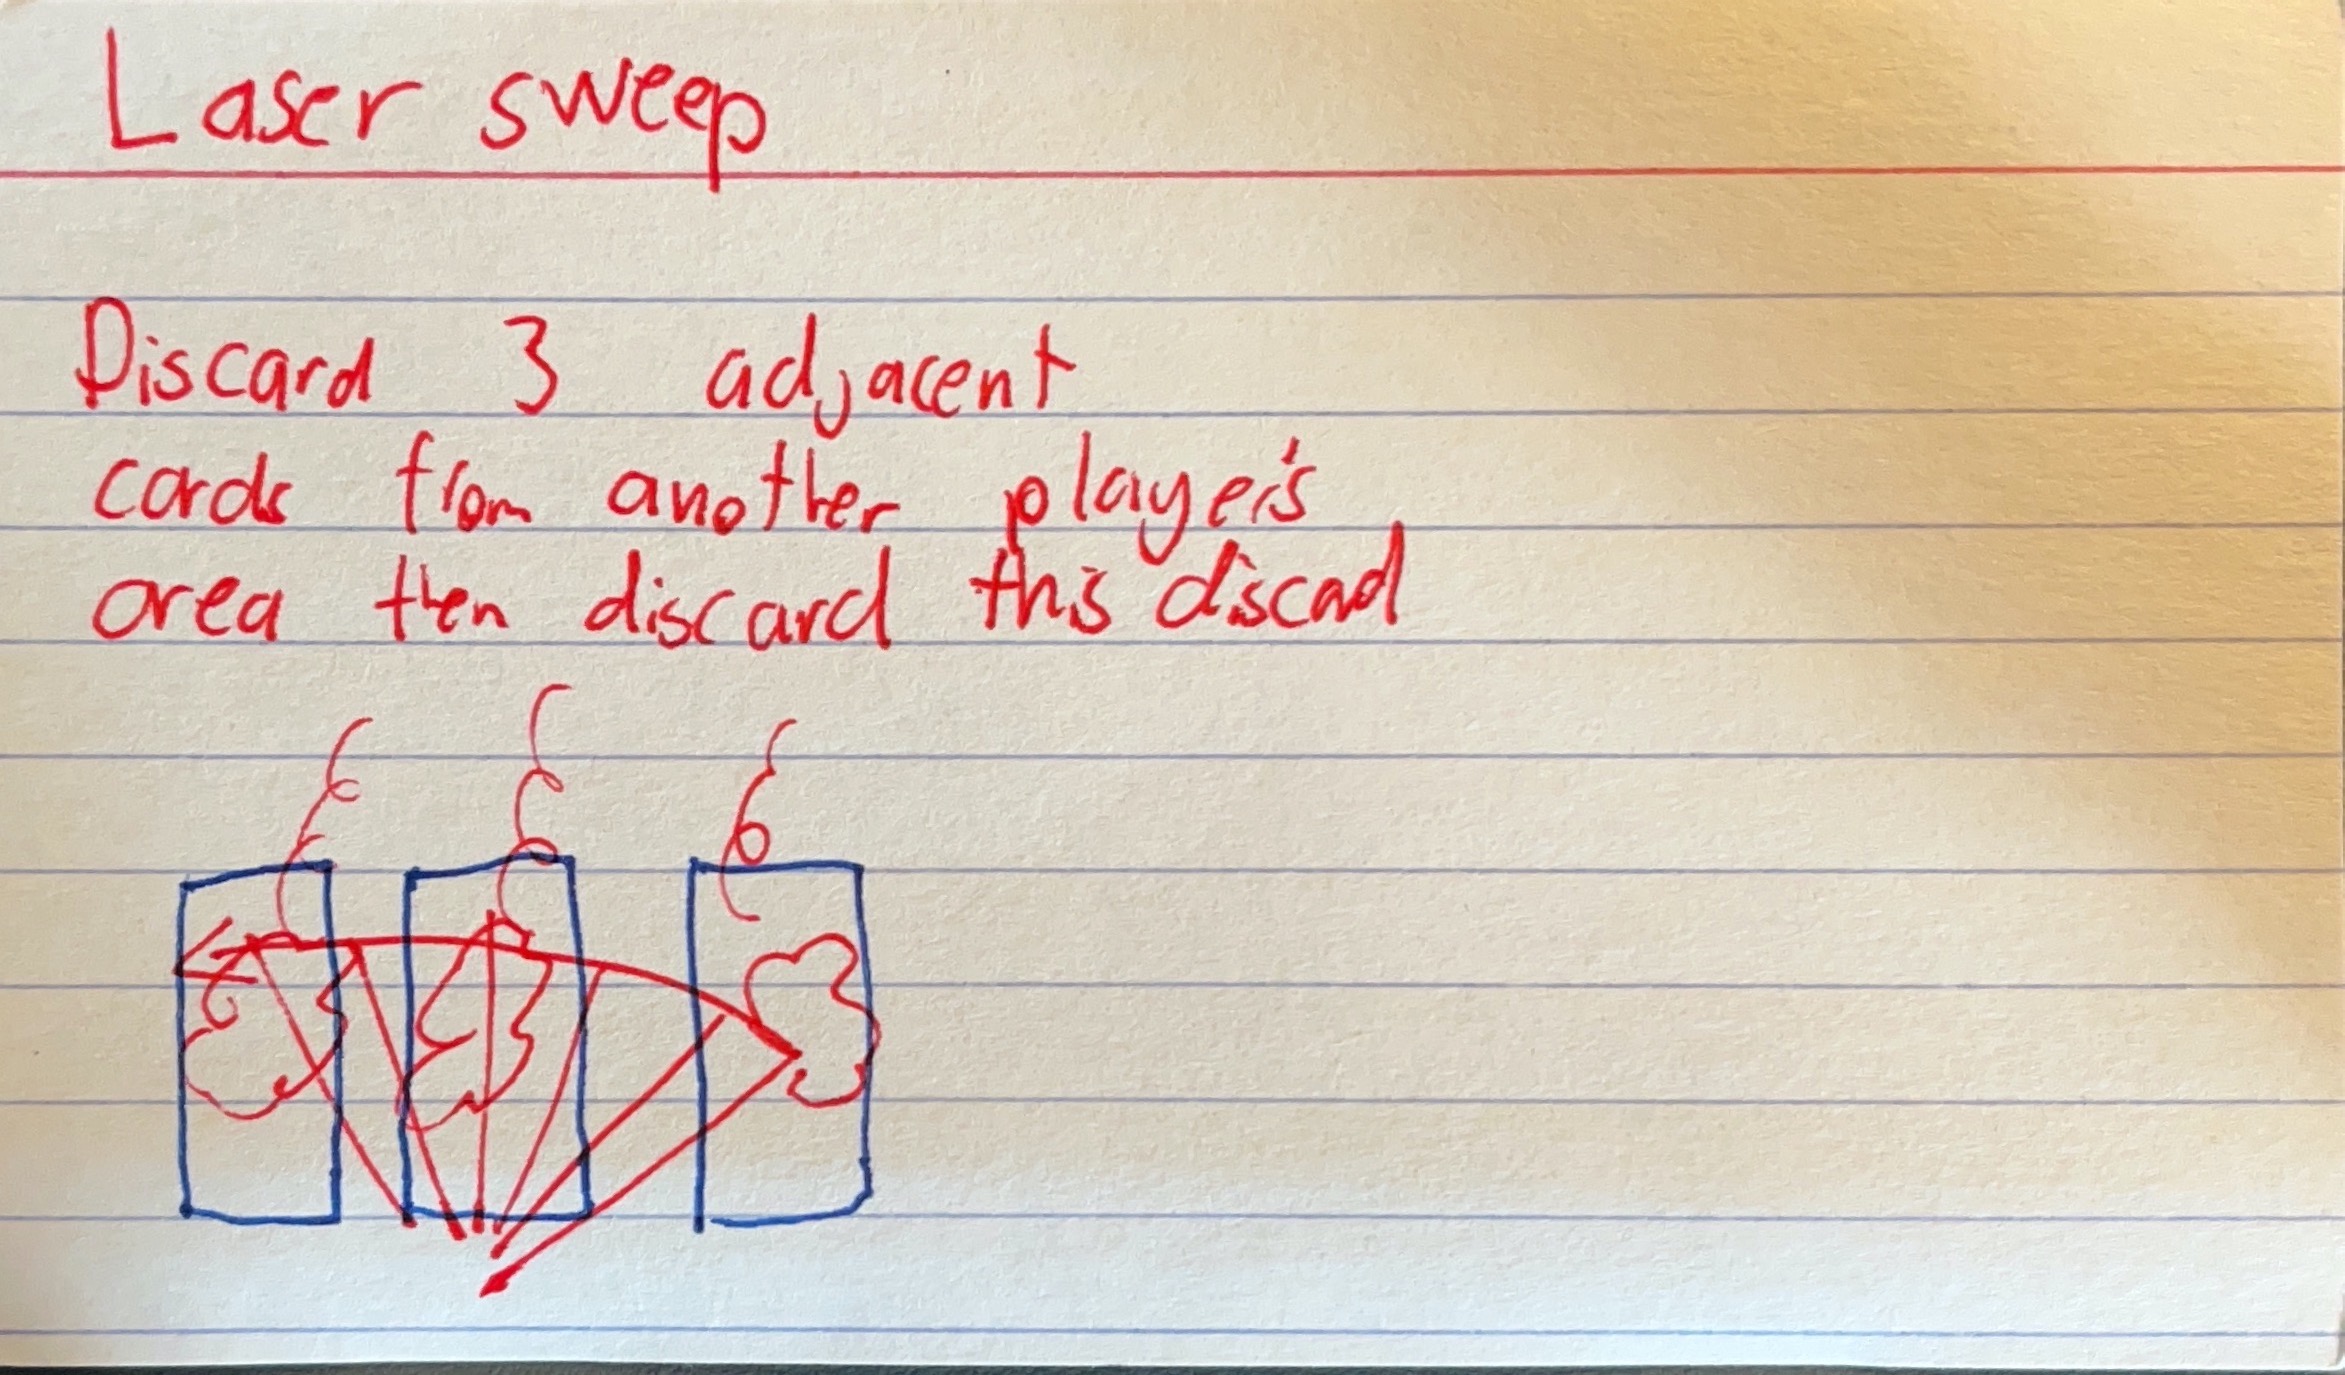 Laser sweep
Discard 3 adjacent
cards from another player's
area then discard this discad